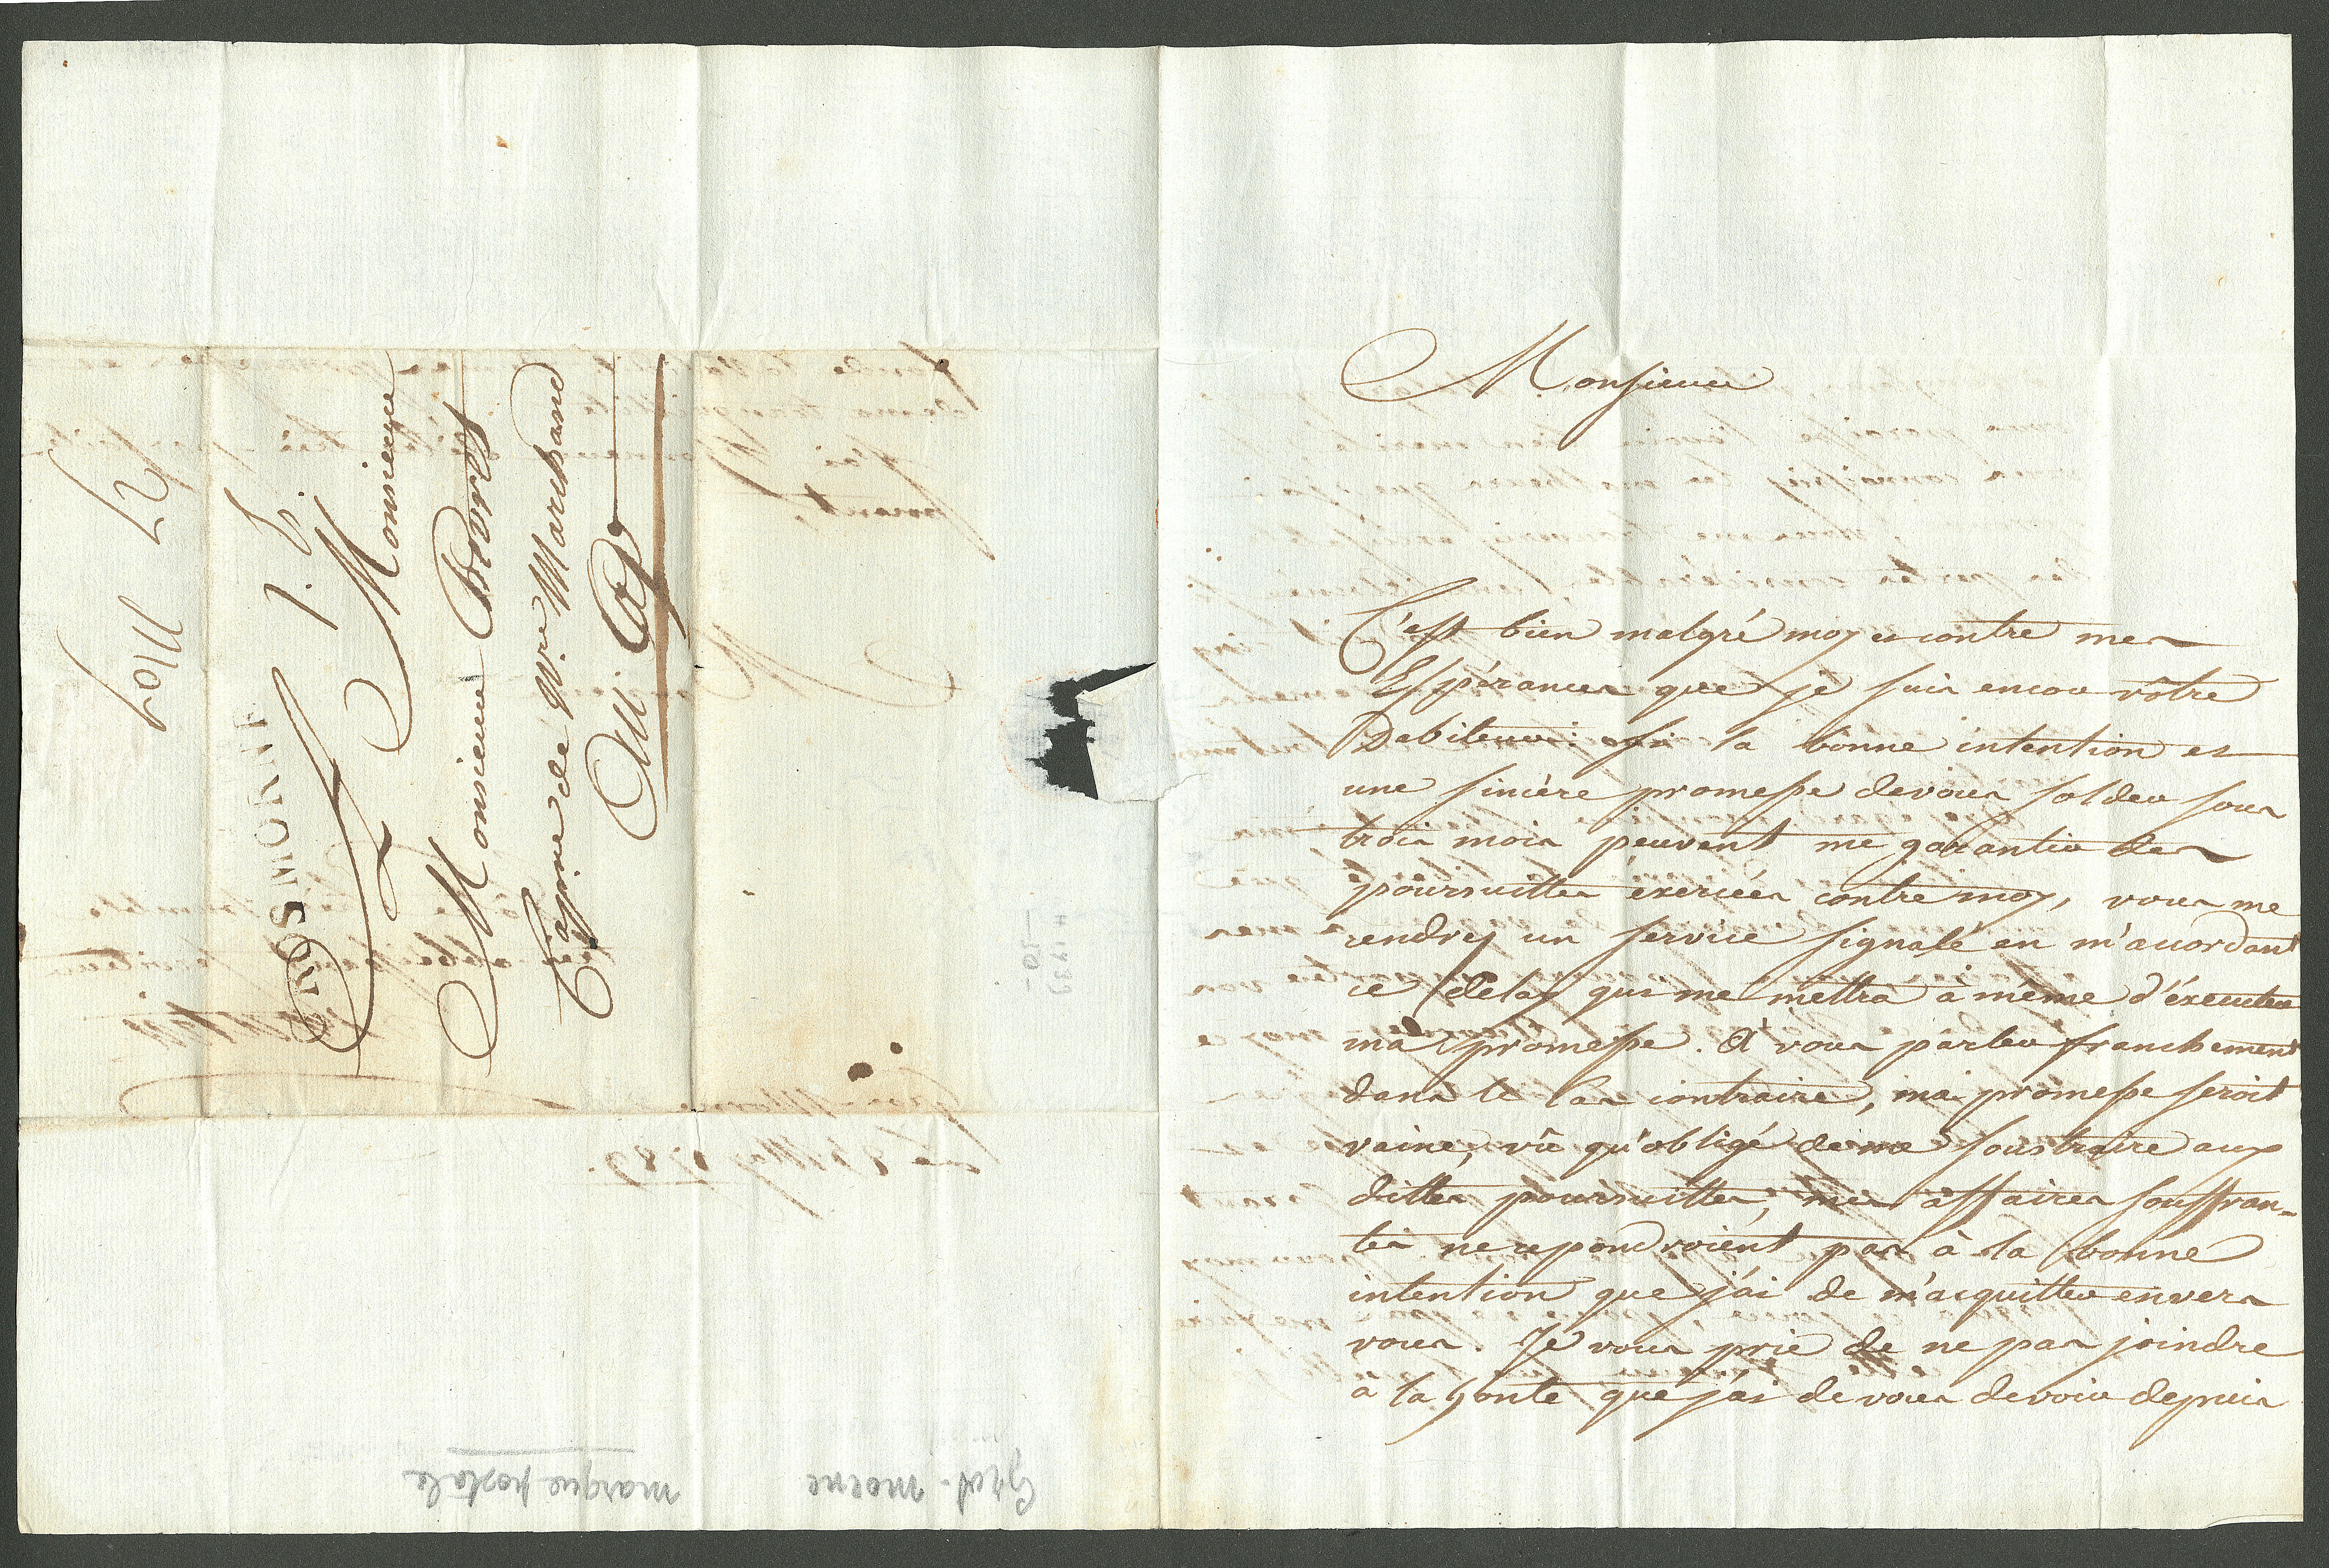 27 May
GROS MORNE
1. 8.
A Monsieur
Monsieur Boré
Cappne de Nre Marchand
Au Cap
Gros-morne
marque postale
Monsieur
C'est bien malgré moy et contre mes
Espérances que je suis encor vôtre
Debiteur: si la bonne intention et
une sincère promesse devous solder sous
trois mois peuvent me garantir des
poursuittes exercées contre moy, vous me
rendrez un service signalé en m'accordant
ce délay qui me mettra à même d'éxecuter
ma promesse. A vous parler franchement
dans le cas contraire, ma promesse seroit
vaine, vû qu'obligé deme soustraire aux
dittes poursuittes, mes affaires souffran-
tes ne repondroient pas à la bonne
intention que j'ai de m'acquitter envers
vous. Je vous prie de ne pas joindre
à la honte que j'ai de vous devoir depuis